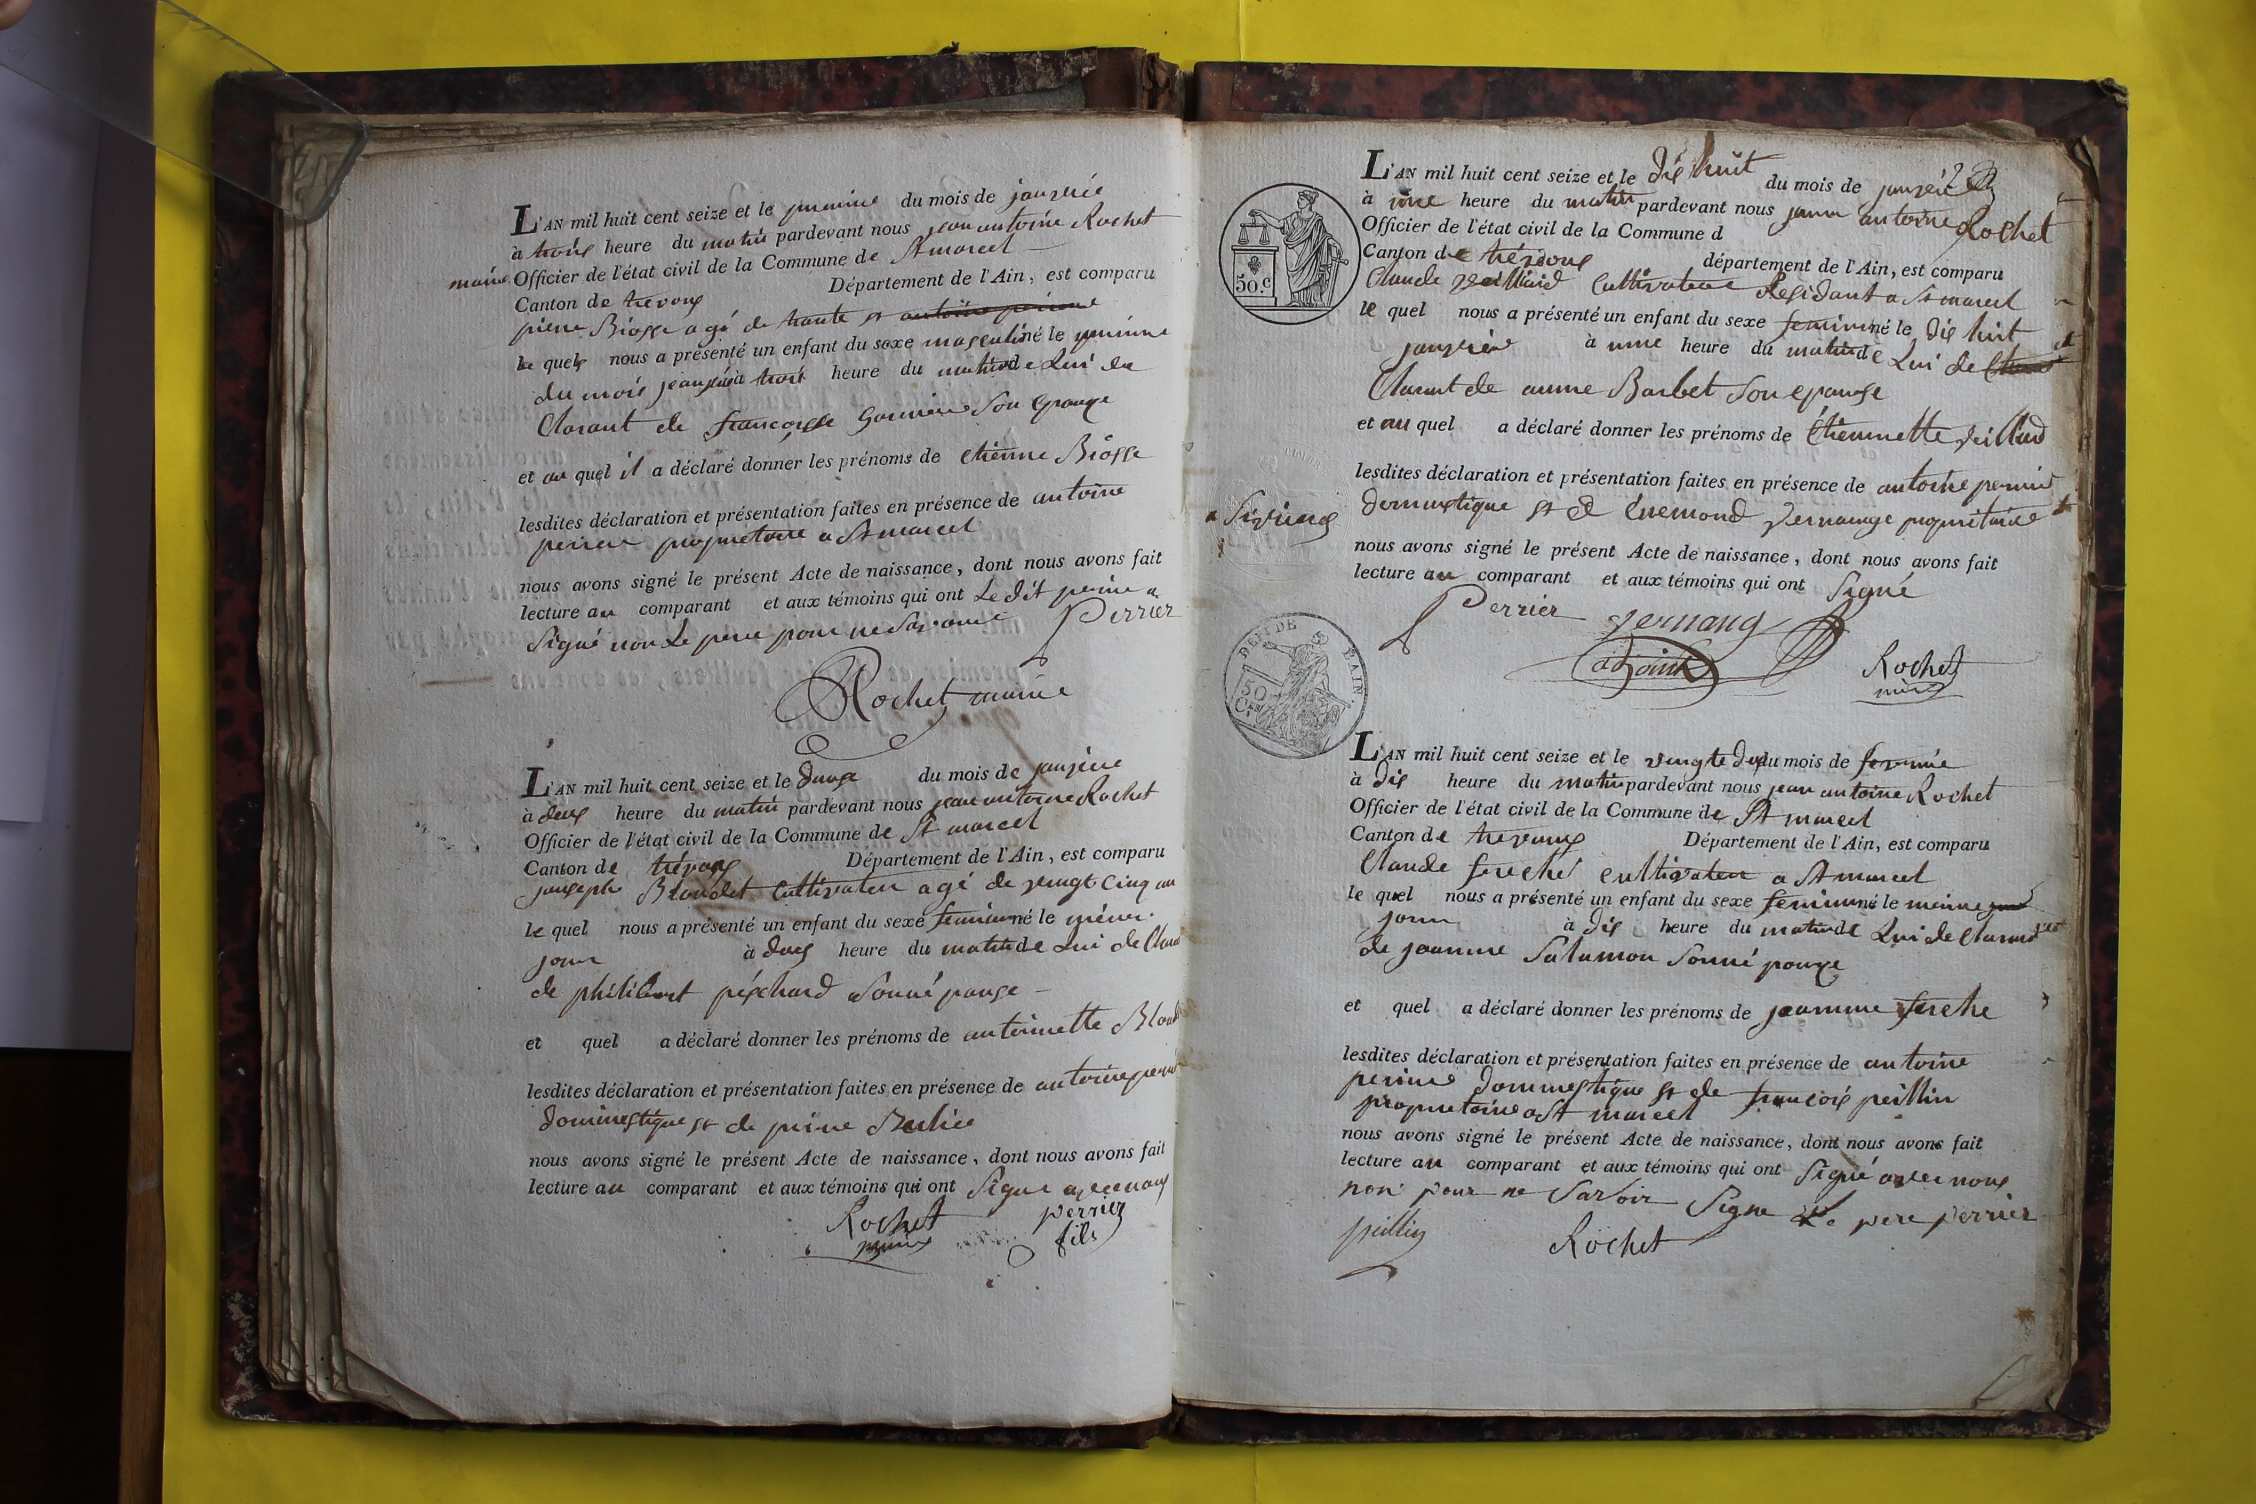 L'AN mil huit cent seize et le premier du mois de janvié
à trois heure du matin pardevant nous jean antoine Rochet
maire Officier de l'état civil de la Commune de St marcel
Canton de trevoux Département de l'Ain, est comparu
pierre Biosse agé de trante et antoine perier
le quel nous a présenté un enfant du sexe masculin né le premier
du mois janvié à trois heure du matin de Lui de
Clarant de françoise Garnier Son Epouze
et au quel il a déclaré donner les prénoms de etienne Biosse
lesdites déclaration et présentation faites en présence de antoine
perier propriétaire a St marcel
nous avons signé le présent Acte de naissance, dont nous avons fait
lecture au comparant et aux témoins qui ont Le dit perier a
Signé non Le pere pour ne Savoir
Perrier
Rochet maire
L'AN mil huit cent seize et le douze du mois de janvier
à deux heure du matin pardevant nous jean antoine Rochet
Officier de l'état civil de la Commune de St marcel
Canton de trévoux Département de l'Ain, est comparu
jouseph Blondet Cultivateur agé de vingt Cinq an
le quel nous a présenté un enfant du sexe feminin né le
jour à deux heure du matin de Lui de Claran
de philibert péchard Sonné pouse
et quel a déclaré donner les prénoms de antoinette
lesdites déclaration et présentation faites en présence de antoine perrier
dominestique et de
nous avons signé le présent Acte de naissance, dont nous avons fait
lecture au comparant et aux témoins qui ont Signé avec nous
Rochet perrier
maire fils
L'AN mil huit cent seize et le dix huit du mois de janvié
à une heure du matin pardevant nous jean antoine Rochet
Officier de l'état civil de la Commune d
Canton de trévoux département de l'Ain, est comparu
Claude veilliard Cultivateur Residant a St marcel
le quel nous a présenté un enfant du sexe feminin né le dix huit
janvier à une heure du matin de Lui de
Clarant de anne Barbet Son epouse
et au quel a déclaré donner les prénoms de Etiennette
lesdites déclaration et présentation faites en présence de antoine perrier
domestique et d Enemond vernange propriétaire
nous avons signé le présent Acte de naissance, dont nous avons fait
lecture au comparant et aux témoins qui ont Signé
Perrier vernang
adjoint Rochet
50.c
DEPT DE L'AIN
50
L'AN mil huit cent seize et le vingte deux du mois de
à dix heure du matin pardevant nous jean antoine Rochet
Officier de l'état civil de la Commune de St marcel
Canton de trevoux Département de l'Ain, est comparu
Claude ferché cultivateur a St marcel
le quel nous a présenté un enfant du sexe feminin né le meime
jour à dix heure du matin de Lui de Clarant
de jeanne Salamon Sonné pouze
et quel a déclaré donner les prénoms de jeanne ferche
lesdites déclaration et présentation faites en présence de antoine
perrier dommestique et de françois peillin
propriétaire a St marcel
nous avons signé le présent Acte de naissance, dont nous avons fait
lecture au comparant et aux témoins qui ont Signé avec nous
non pour ne Savoir Signe Le pere perrier
peillin Rochet